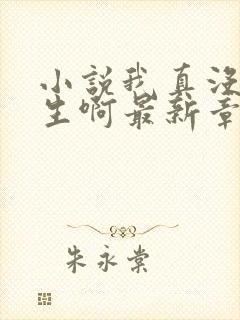 小说我真没
生啊最新章
朱永棠